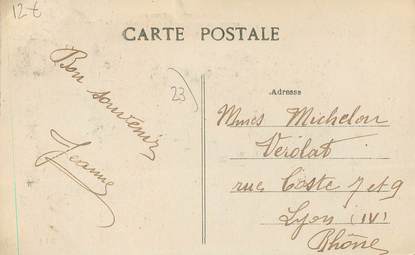 12 €
CARTE POSTALE
Bon souvenir
Jeanne
23
Adresse
Mmes Michelon
Verolat
rue Coste 7 et 9
Lyon (IV)
Rhône